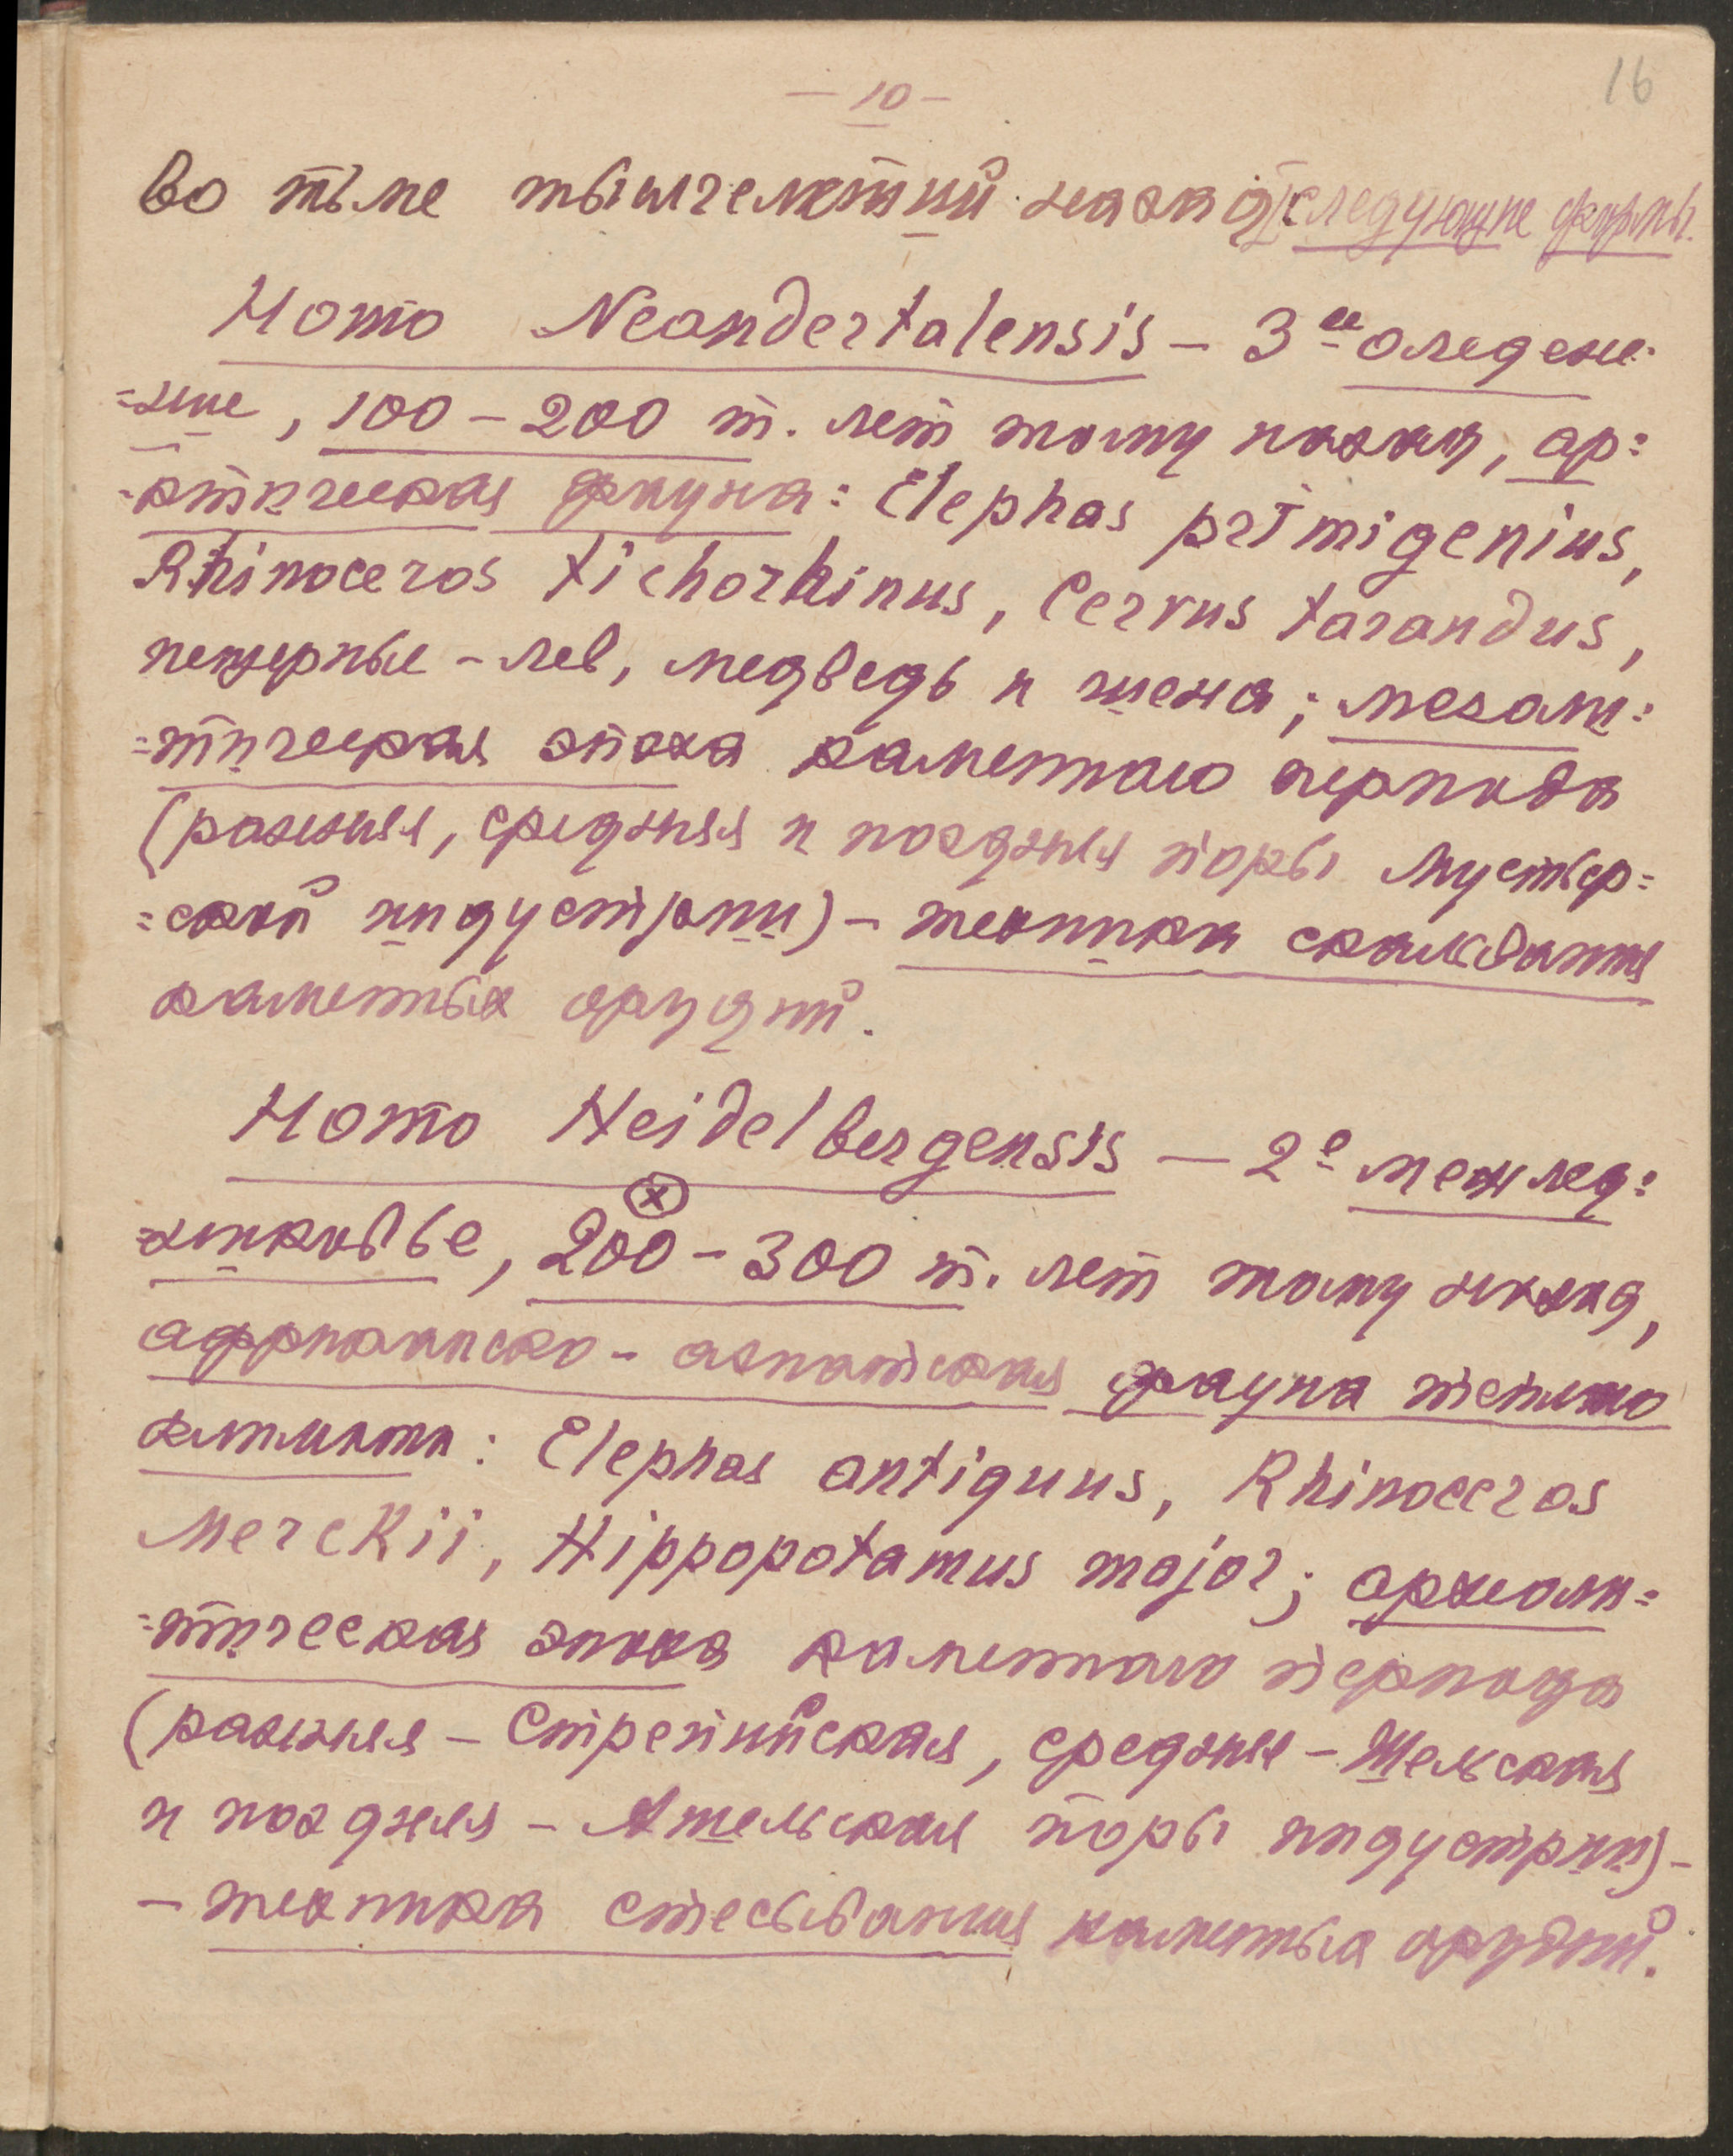 16
— 10 —
во тьме тысячелетий назад следующие формы.
Homo Neandertalensis – 3ее оледене=
=ние, 100 – 200 т. лет тому назад, ар=
=ктическая фауна: Elephas primigenius,
Rhinoceros tichorhinus, Cervus tarandus,
пещерные – лев, медведь и гиена; мезоли=
=тическая эпоха каменного периода
(ранняя, средняя и поздняя поры Мустьер=
=ской индустрии) – техника скалывания
каменных орудий.
Homo Heidelbergensis – 2е межлед=
=никовье, 200 (x) – 300 т. лет тому назад,
африканско – азиатская фауна теплого
климата: Elephas antiquus, Rhinoceros
Merckii, Hippopotamus major; археоли=
=тическая эпоха каменного периода
(ранняя – Стрепийская, средняя – Шельская
и поздняя – Ашельская поры индустрии) –
– техника стесывания каменных орудий.